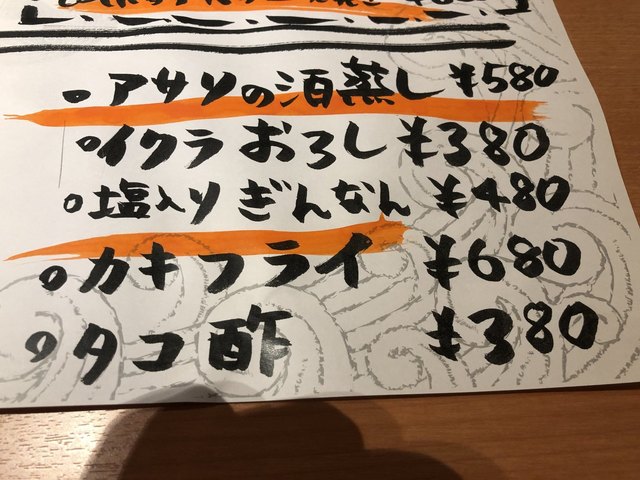 アサリの酒蒸し ¥580
イクラおろし ¥380
塩入りぎんなん ¥480
カキフライ ¥680
タコ酢 ¥380